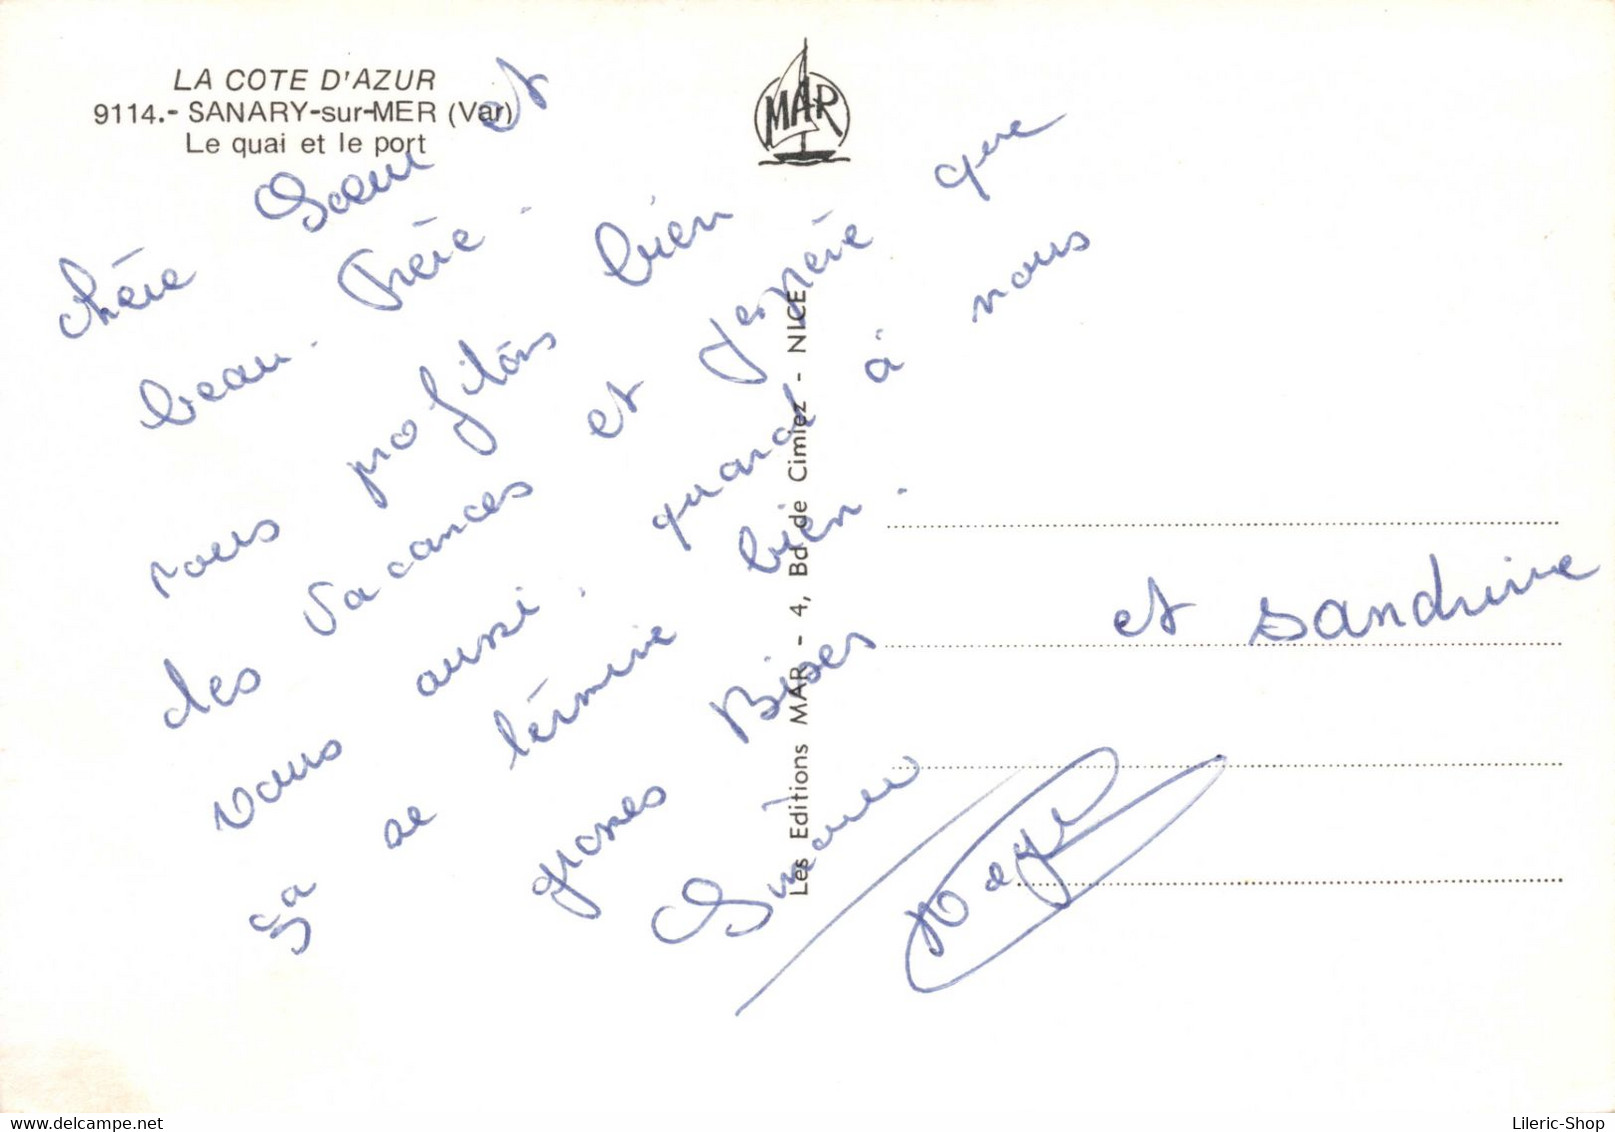 LA COTE D'AZUR
9114.- SANARY-sur-MER (Var)
Le quai et le port
MAR
Chère Soeur et
beau-Frère.
nous profitons bien
des vacances et j'espère que
vous aussi, quand à nous
ça se términe bien.
grosses Bises
et sandrine
Les Editions MAR - 4, Bd de Cimiez - NICE
Lileric-Shop